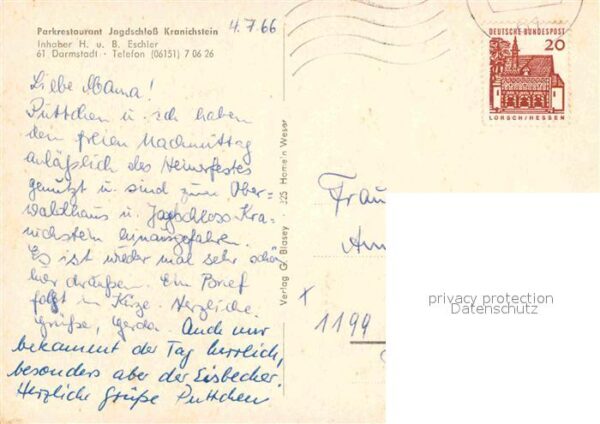 Parkrestaurant Jagdschloß Kranichstein
Inhaber H. u. B. Eschler
61 Darmstadt · Telefon (06151) 7 06 26
4.7.66
Liebe Mama!
Puttchen u. ich haben
den freien Nachmittag
anläßlich des Heinerfestes
genutzt u. sind zum Ober-
waldhaus u. Jagdschloss Kra-
nichstein hinausgefahren.
Es ist wieder mal sehr schön
hier draußen. Ein Brief
folgt in Kürze. Herzliche
Grüße, Gerda. Auch mir
bekommt der Tag herrlich,
besonders aber der Eisbecher.
Herzliche Grüße Puttchen
Verlag Gg. Blasey · 325 Hameln Weser
DEUTSCHE BUNDESPOST
20
LORSCH/HESSEN
Frau
1199
privacy protection
Datenschutz